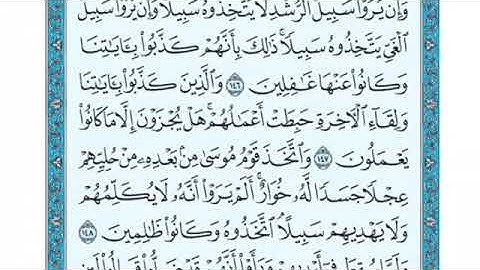 وَإِن يَرَوْا۟ سَبِيلَ ٱلرُّشْدِ لَا يَتَّخِذُوهُ سَبِيلًا وَإِن يَرَوْا۟ سَبِيلَ
ٱلْغَىِّ يَتَّخِذُوهُ سَبِيلًا ۚ ذَٰلِكَ بِأَنَّهُمْ كَذَّبُوا۟ بِـَٔايَـٰتِنَا
وَكَانُوا۟ عَنْهَا غَـٰفِلِينَ ١٤٦ وَٱلَّذِينَ كَذَّبُوا۟ بِـَٔايَـٰتِنَا
وَلِقَآءِ ٱلْـَٔاخِرَةِ حَبِطَتْ أَعْمَـٰلُهُمْ ۚ هَلْ يُجْزَوْنَ إِلَّا مَا كَانُوا۟
يَعْمَلُونَ ١٤٧ وَٱتَّخَذَ قَوْمُ مُوسَىٰ مِنۢ بَعْدِهِۦ مِنْ حُلِيِّهِمْ
عِجْلًا جَسَدًا لَّهُۥ خُوَارٌ ۚ أَلَمْ يَرَوْا۟ أَنَّهُۥ لَا يُكَلِّمُهُمْ
وَلَا يَهْدِيهِمْ سَبِيلًا ۘ ٱتَّخَذُوهُ وَكَانُوا۟ ظَـٰلِمِينَ ١٤٨